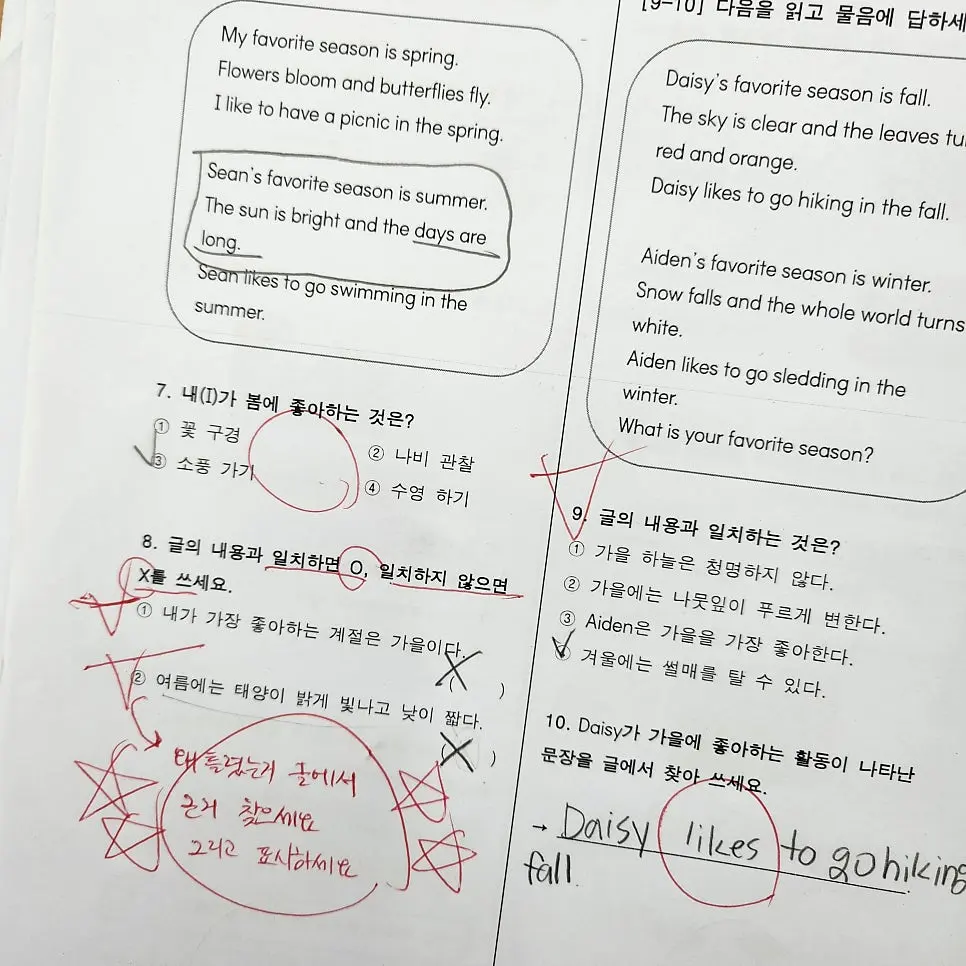 My favorite season is spring.
Flowers bloom and butterflies fly.
I like to have a picnic in the spring.
Sean's favorite season is summer.
The sun is bright and the days are
long.
Sean likes to go swimming in the
summer.
7. 내(I)가 봄에 좋아하는 것은?
① 꽃 구경
② 나비 관찰
③ 소풍 가기
④ 수영 하기
8. 글의 내용과 일치하면 O, 일치하지 않으면
X를 쓰세요.
① 내가 가장 좋아하는 계절은 가을이다.
( X )
② 여름에는 태양이 밝게 빛나고 낮이 짧다.
( X )
왜 틀렸는지 글에서
근거 찾으세요
그리고 표시하세요
[9-10] 다음을 읽고 물음에 답하세
Daisy's favorite season is fall.
The sky is clear and the leaves tu
red and orange.
Daisy likes to go hiking in the fall.
Aiden's favorite season is winter.
Snow falls and the whole world turns
white.
Aiden likes to go sledding in the
winter.
What is your favorite season?
9. 글의 내용과 일치하는 것은?
① 가을 하늘은 청명하지 않다.
② 가을에는 나뭇잎이 푸르게 변한다.
③ Aiden은 가을을 가장 좋아한다.
④ 겨울에는 썰매를 탈 수 있다.
10. Daisy가 가을에 좋아하는 활동이 나타난
문장을 글에서 찾아 쓰세요.
→ Daisy likes to go hiking
fall.